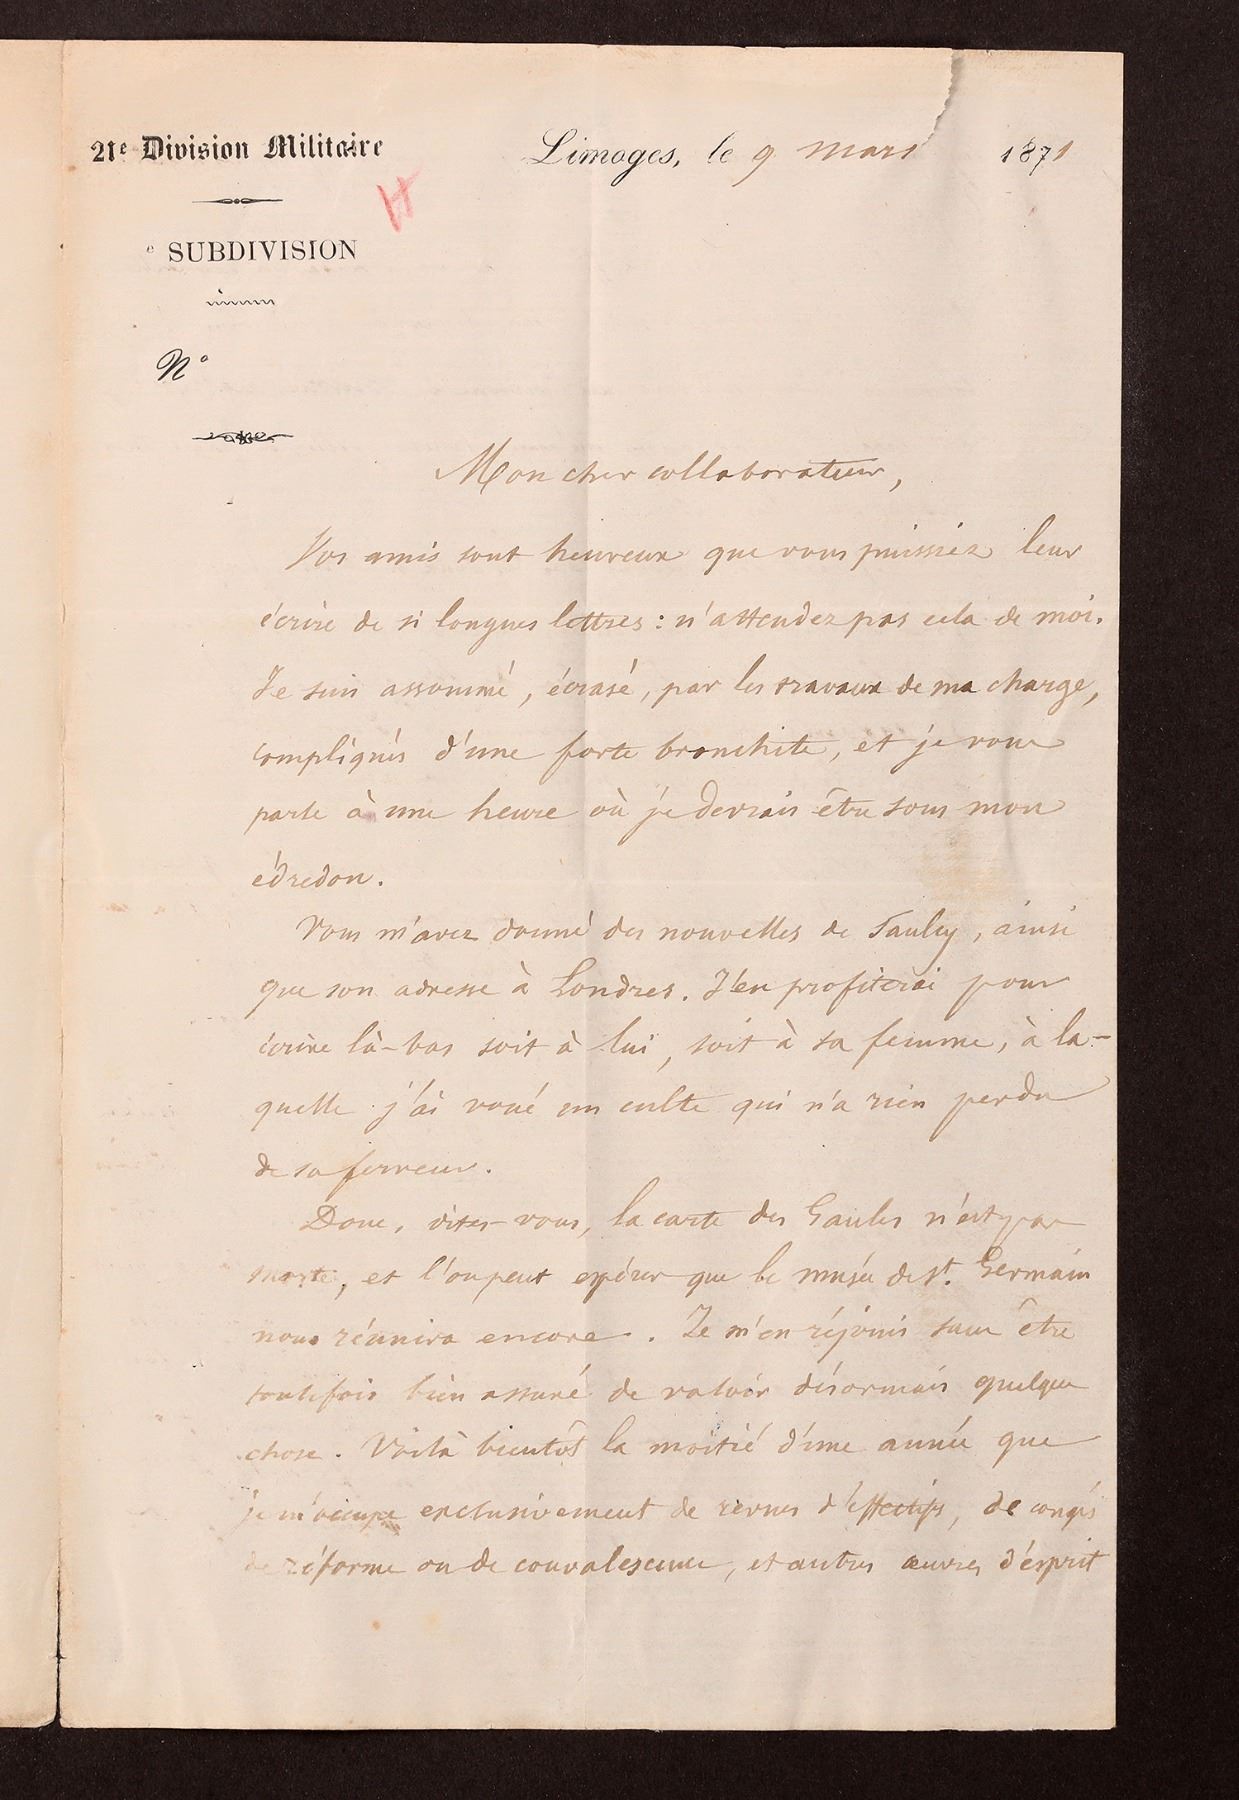 21e Division Militaire
Limoges, le 9 mars 1871
H
e SUBDIVISION
No
Mon cher collaborateur,
Vos amis sont heureux que vous puissiez leur
écrire de si longues lettres : n'attendez pas cela de moi.
Je suis assommé, écrasé, par les travaux de ma charge,
compliqués d'une forte bronchite, et je vous
parle à une heure où je devrais être sous mon
édredon.
Vous m'avez donné des nouvelles de Saulcy, ainsi
que son adresse à Londres. J'en profiterai pour
écrire là-bas soit à lui, soit à sa femme, à la-
quelle j'ai voué un culte qui n'a rien perdu
de sa ferveur.
Donc, dites-vous, la carte des Gaules n'est pas
morte, et l'on peut espérer que le musée de St. Germain
nous réunira encore. Je m'en réjouis sans être
toutefois bien assuré de valoir désormais quelque
chose. Voilà bientôt la moitié d'une année que
je m'occupe exclusivement de revues d'effectifs, de congés
de réforme ou de convalescence, et autres œuvres d'esprit